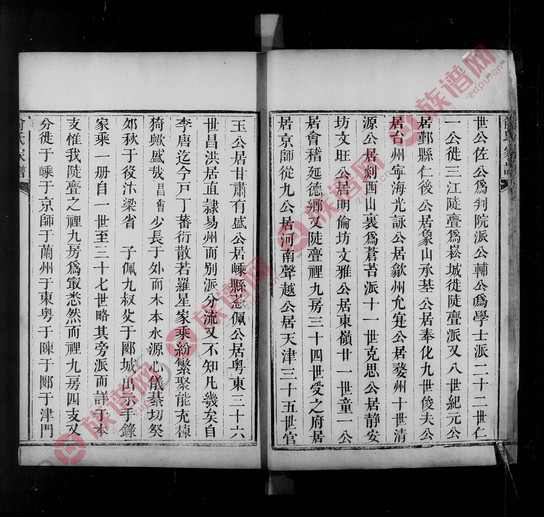 世公佐公為判院派公輔公為學士派二十二世仁
一公徙三江陡亹為崧城徙陡亹派又八世紀元公
居鄞縣仁後公居象山承基公居奉化九世俊夫公
居台州寧海光詠公居歙州允寔公居婺州十世清
源公居剡西山裏為蒼苔派十一世克思公居靜安
坊文旺公居明倫坊文雅公居東嶺廿一世童一公
居會稽延德鄉又陡亹裡九房三十四世受之府居
居京師從九公居河南聲越公居天津三十五世官
玉公居甘肅有盛公居嵊縣志佩公居粵東三十六
世昌洪居直隷易州而別派分流又不知凡幾矣自
李唐迄今戸丁蕃衍散若羅星家乘紛繁聚能充棟
猗歟盛哉昌鬵少長于外而木本水源心儀綦切癸
夘秋于役汴梁省子佩九叔父于郾城出示手錄
家乘一册自一世至三十七世略其旁派而詳于本
支惟我陡亹之裡九房為最悉然而裡九房四支又
分徙于嵊于京師于蘭州于東粵于陳于郾于津門
俞氏家譜
族谱网
zupu.cn